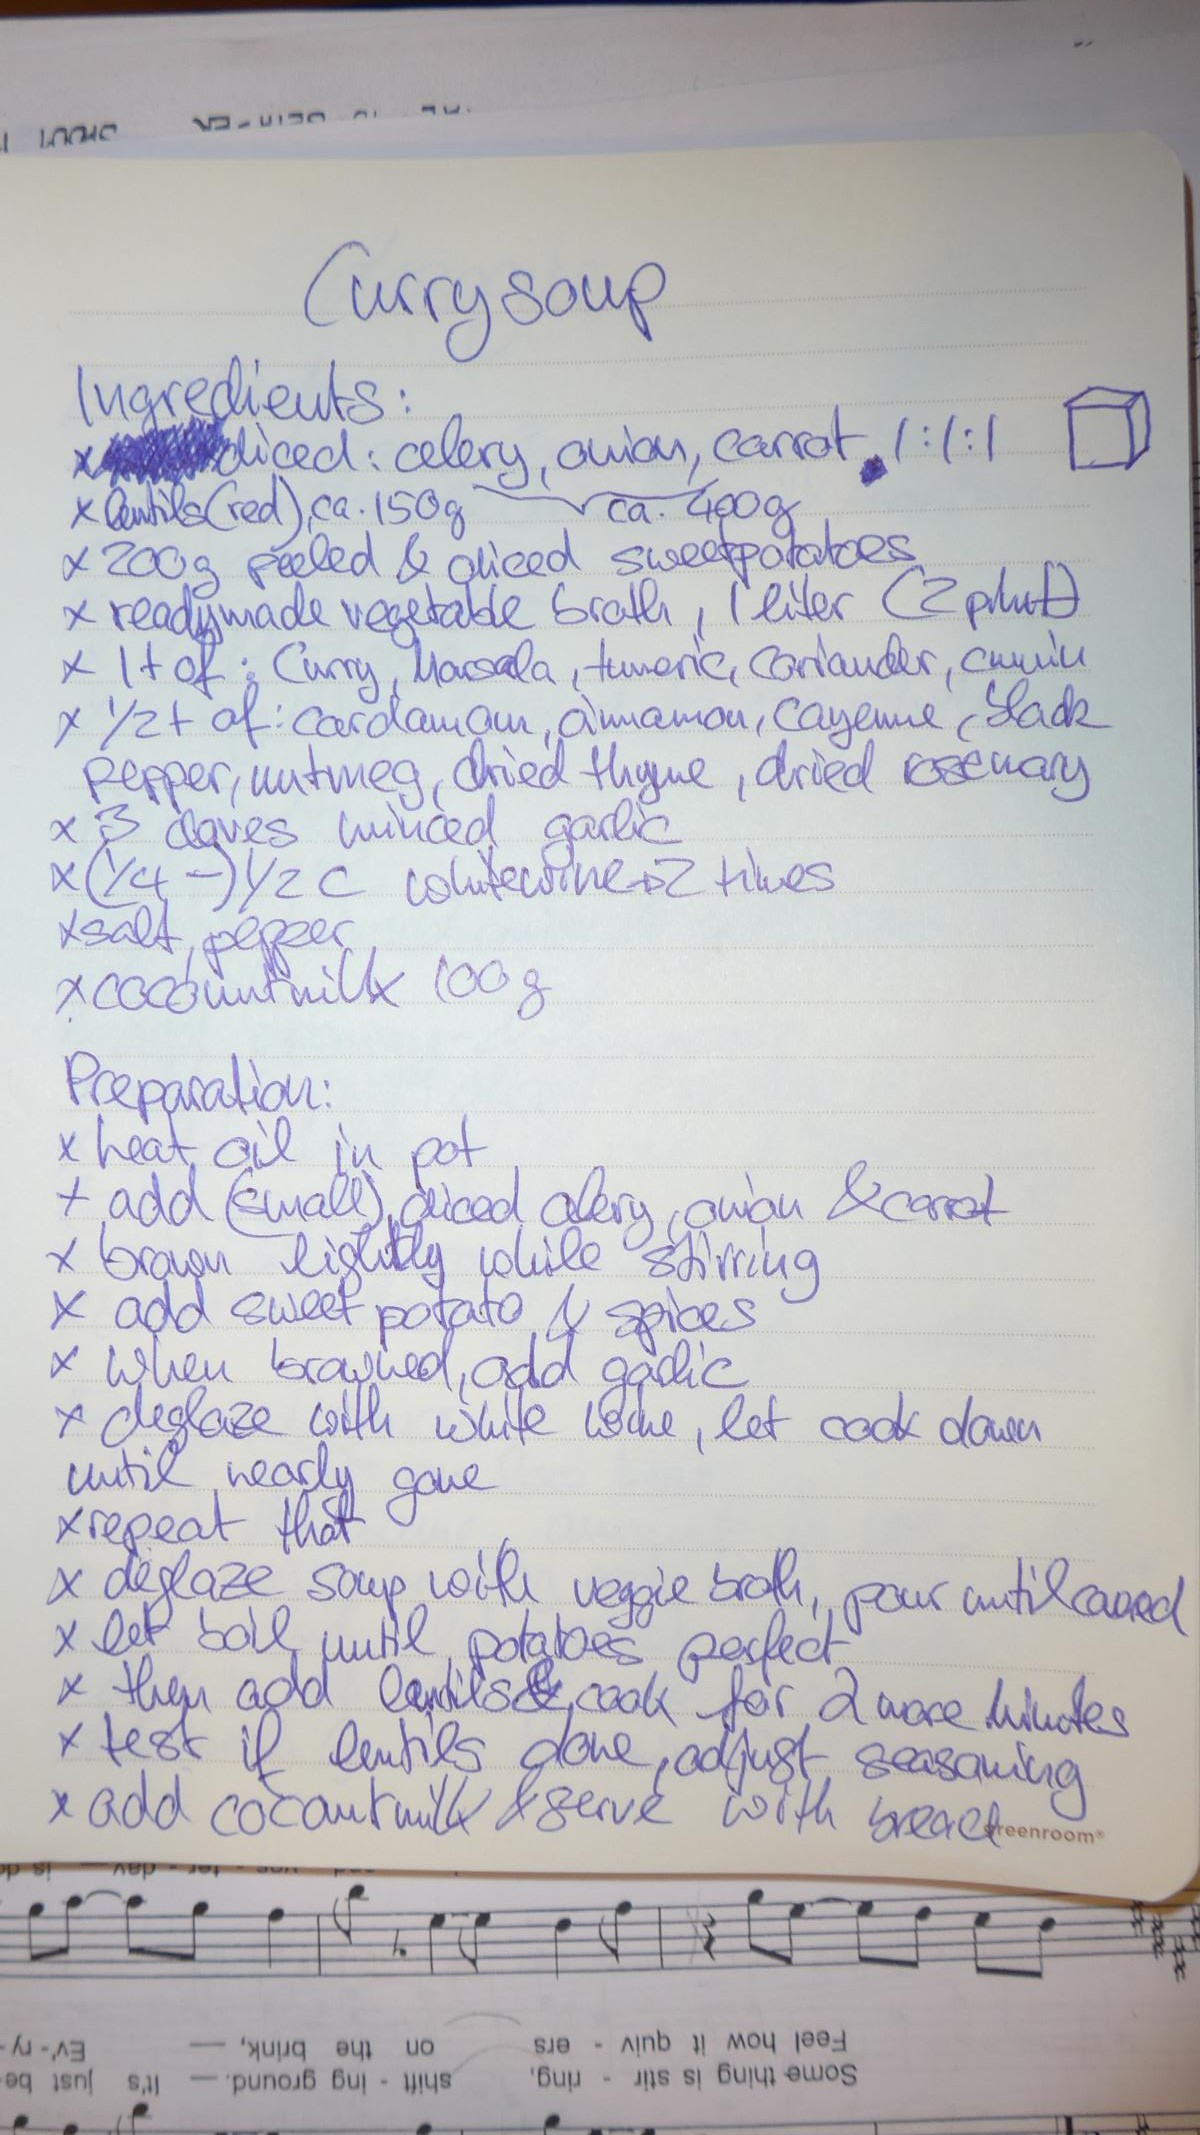 Curry soup
Ingredients:
x diced: celery, onion, carrot, 1:1:1
x lentils (red), ca. 150g ca. 400g
x 200g peeled & diced sweetpotatoes
x readymade vegetable broth, 1 liter (2 pint)
x 1t of: Curry, Marsala, tumeric, coriander, cumin
x 1/2t of: cardamom, cinnamon, cayenne, black
pepper, nutmeg, dried thyme, dried rosemary
x 3 cloves minced garlic
x (1/4 -) 1/2 C whitewine → 2 times
x salt, pepper
x cocountmilk 100g
Preparation:
x heat oil in pot
+ add (small), diced celery, onion & carrot
x brown lightly while stirring
x add sweet potato & spices
x when browned, add garlic
x deglaze with white wine, let cook down
until nearly gone
x repeat that
x deglaze soup with veggie broth, pour until covered
x let boil until potatoes perfect
x then add lentils & cook for 2 more minutes
x test if lentils done, adjust seasoning
x add cocountmilk & serve with bread
greenroom®
Feel how it quiv - ers on the brink, Ev'-ry-
Some thing is stir - ring, shift - ing ground. It's just be